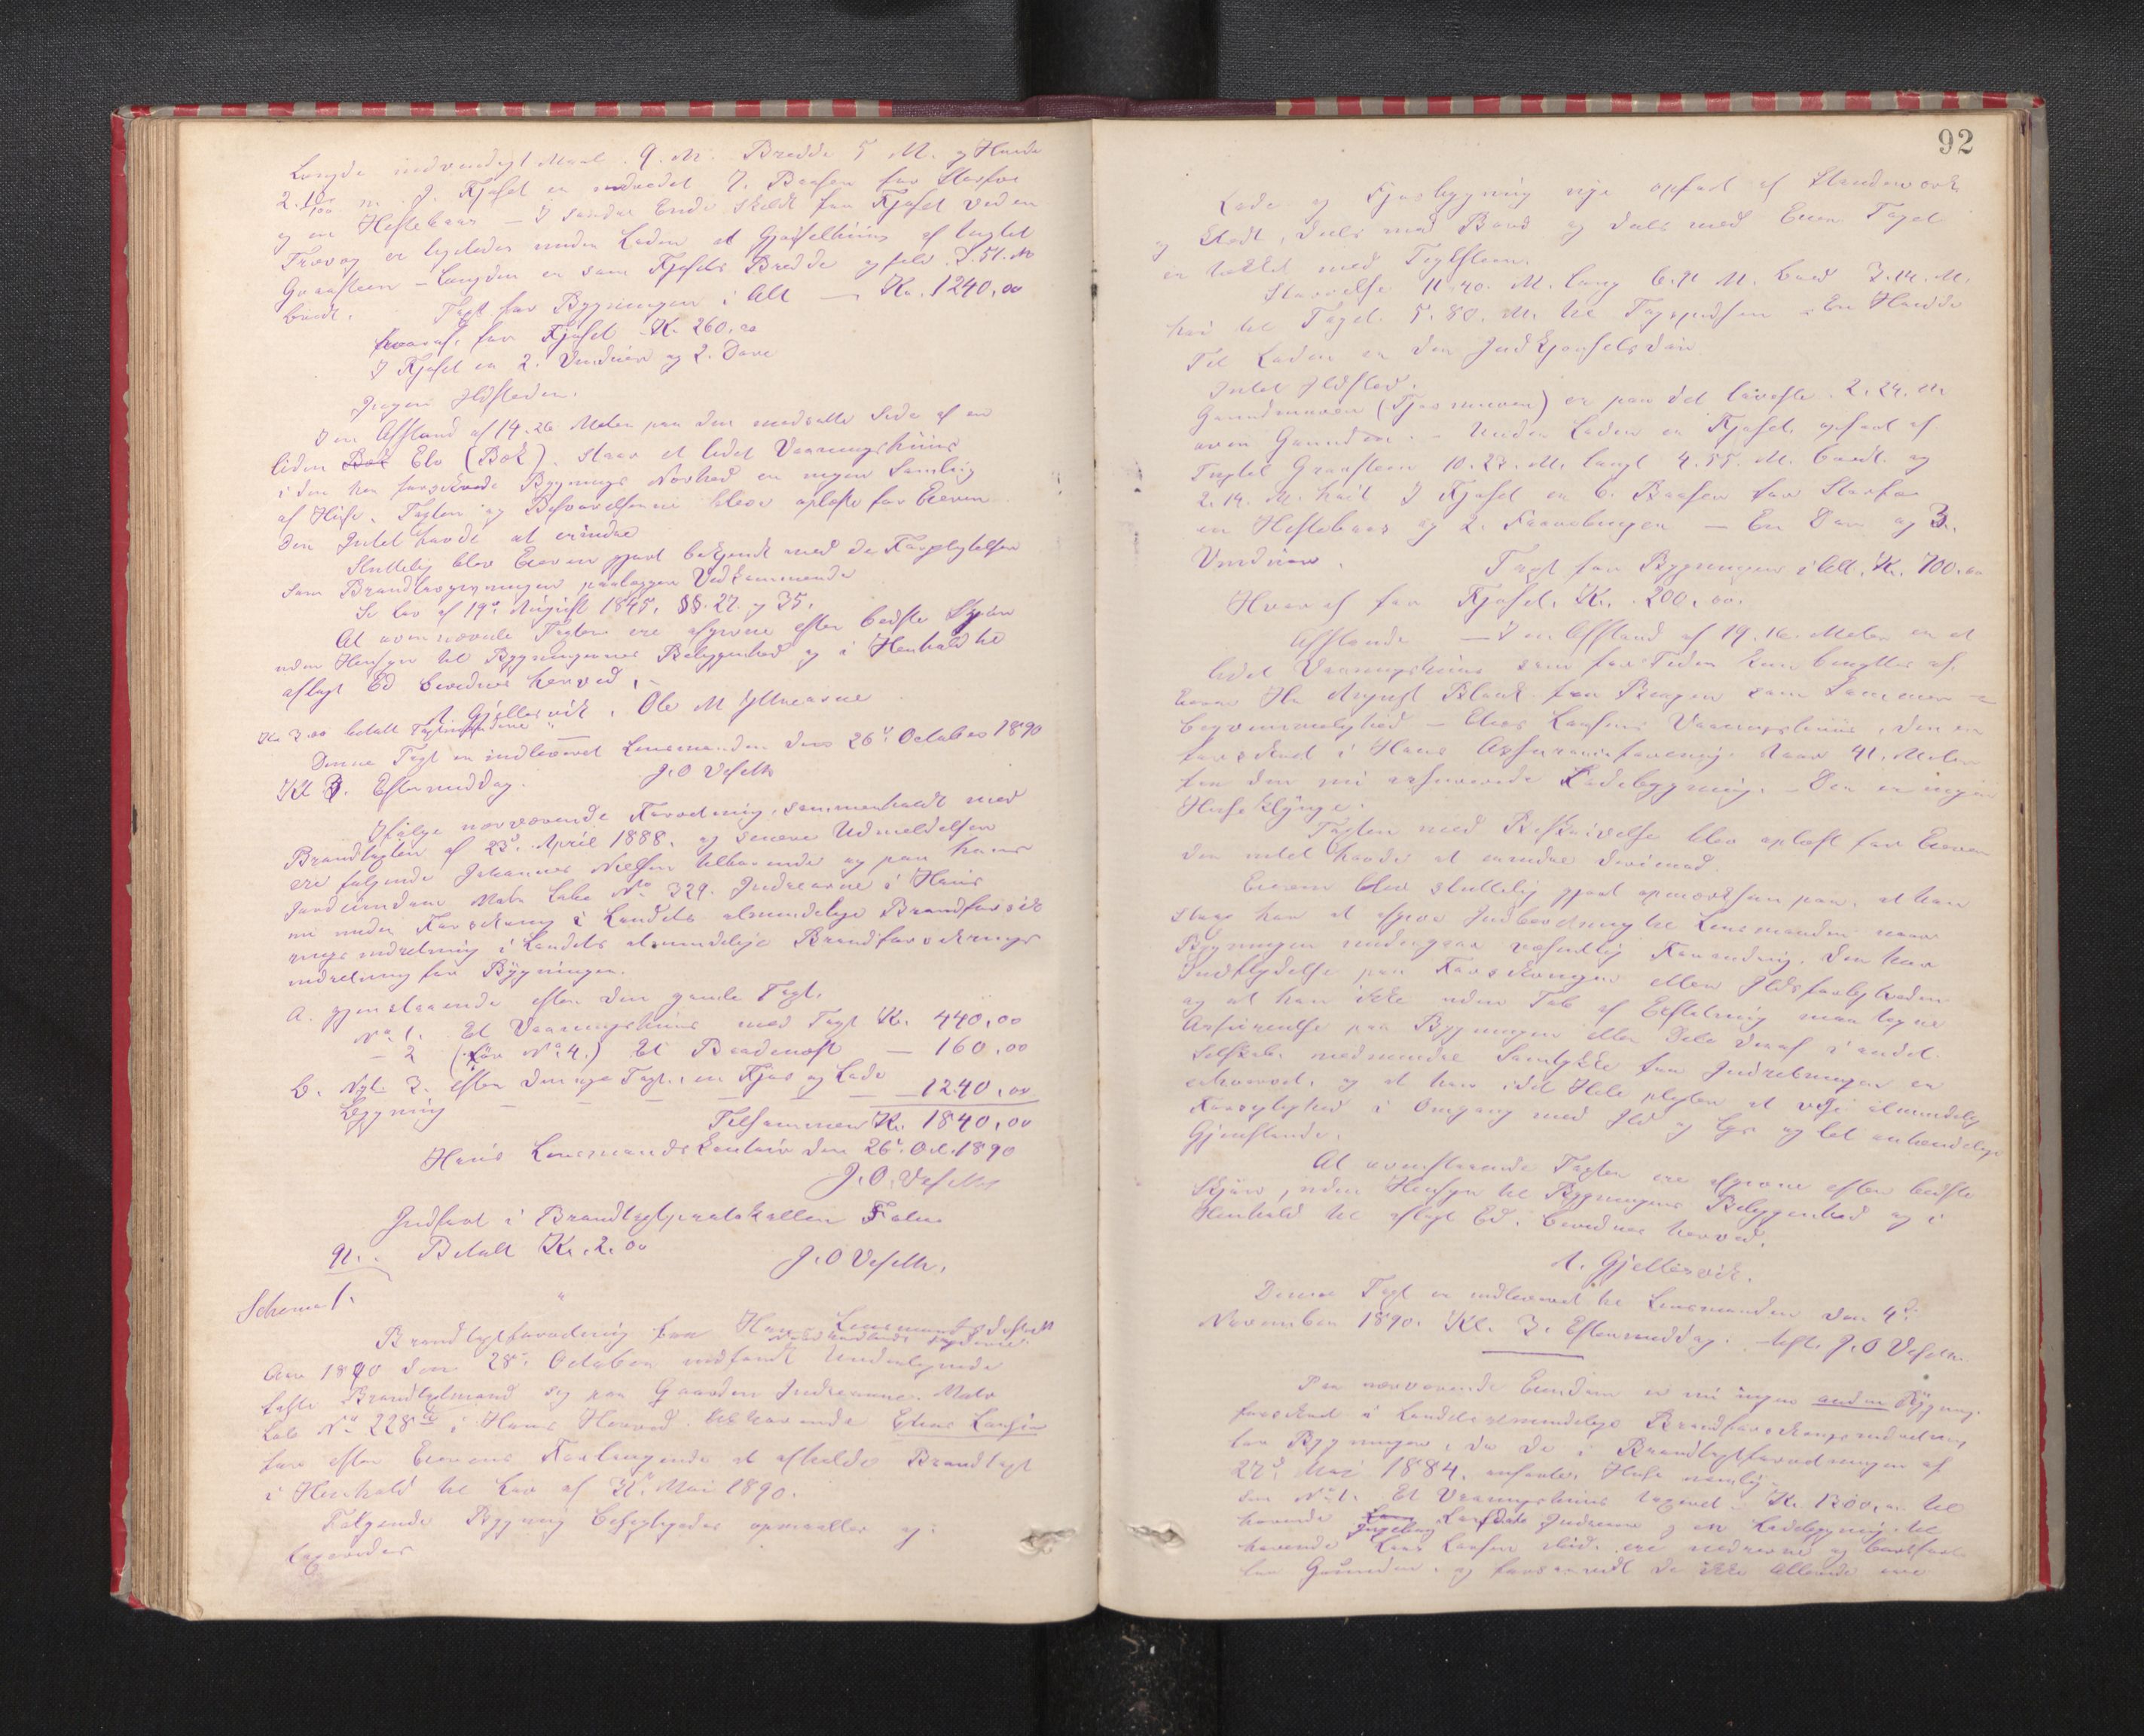 Længde indvendigt Maal 9. M. Bredde 5 M. og Høide
2. 10/100 m. I Fjøset er indredet 7. Baase for Storfæ
og en Hestebaas — I søndre Ende skildt fra Fjøset ved en
Trævæg er ligeledes under Laden et Gjødselhuus af tugtet
Graasteen — Længden er som Fjøsets Bredde og selv 3.51. M
bredt. Taxt for Bygningen i Alt — Kr. 1240,00
hvoraf for Fjøset Kr. 260,00
I Fjøset er 2. Vinduer og 2. Døre
Ingen Ildsteder.
I en Afstand af 14.26 Meter paa den modsatte Side af en
liden Elv (Bæk). staar et lidet Vaaningshuus
i den her Bygnings Nærhed er ingen Samling
af Huse. Taxten og Beskrivelserne bleve oplæste for Eieren
den Intet havde at erindre
Sluttelig blev Eieren gjort bekjendt med de Forpligtelser
som Brandlovgivningen paalægger Vedkommende
Se lov af 19de August 1845, §§. 22. og 35.
At ovennævnte Taxter ere afgivne efter bedste Skjøn
uden Hensyn til Bygningernes Beliggenhed og i Henhold til
aflagt Ed bevidnes herved.
A. Gjellesvik. Ole M
Kr. 2.00 betalt
Denne Taxt er indleveret Lensmanden den 26de October 1890
Kl 3. Eftermiddag. J. O Vefelle
Ifølge nærværende Forretning, sammenholdt med
Brandtaxten af 23de April 1888. og senere Udmeldelser
ere følgende Johannes Nielsen tilhørende og paa hans
Jordeiendom Matr Løbe No 329. Indrearne i Haus
nu under Forsikring i Landets almindelige Brandforsik
rings indretning i Landets almindelige Brandforsikrings
indretning for Bygninger.
A. gjenstaaende efter den gamle Taxt.
No 1. Et Vaaningshuus med Taxt Kr. 440,00
— 2 (før No 4.) Et — 160,00
B. Nyt. 3. efter den nye Taxt. en Fjøs og Lade
Bygning — — — — — — 1240,00
Tilsammen Kr. 1840,00
Haus Lensmandskontoir den 26de Oct. 1890
J. O. Vefelle
Indført i Brandtaxtprotokollen Folio
91. Betalt Kr. 2.00 J. O Vefelle.
Schema 1.
Brandtaxtforretning fra Haus Lensmandsdistrikt
Nordhordlands Fogderie.
Aar 1890 den 28de October indfandt Undertegnede
faste Brandtaxtmand sig paa Gaarden Indrearne. Matr
Løb No 228 i Haus Herred. tilhørende Elias Larsen
for efter Eierens Forlangende at afholde Brandtaxt
i Henhold til Lov af Mai 1890.
Følgende Bygning besigtigedes opmaaltes og
taxeredes
92
Lade og Fjøsbygning nye opført af Stenderværk
og Stedt, deels med Bord og deels med Taget
er tækket med Taglsteen.
Størrelse 11.40. M. lang M. bred 3.14. M.
høi til Taget 5.80. M. til Tagspidsen
Til Laden er den Indkjørselsdør
Intet Ildsted.
Grundmuren (Fjøsmuren) er paa det laveste 2.24. M
over Grunden. — Under Laden er Fjøset, opført af
Tugtet Graasteen 10.27. M. langt 4.55. M. bredt og
2.14. M. høit I Fjøset er 6. Baaser for Storfæ
en Hestebaas og 2. Faarebinger — En Dør og 3.
Vinduer. Taxt for Bygningen i Alt. Kr. 700.00
Hvoraf for Fjøset. Kr. 200,00.
Afstande — I en Afstand af 19.16 Meter er et
lidet Vaaningshuus som for Tiden kun benyttes af
Hr August Blauk fra Bergen som Sommer
beqvemmelighed — Elias Larsens Vaaningshuus, den er
forsikret i Haus Assuranceforening. staar 41. Meter
fra den nu assurerede Ladebygning. — Der er ingen
Huseklynge.
Taxten med Beskrivelse blev oplæst for Eieren
den intet havde at erindre derimod.
Eieren blev sluttelig gjort opmærksom paa, at han
strax har at afgive Indberetning til Lensmanden naar
Bygningen undergaar væsentlig Forandring. den har
Indflydelse paa Forsikringen eller Ildsfarligheden
og at han ikke uden Tab af Erstatning maa tegne
Assurance paa Bygningen eller Dele deraf i andet
Selskab. medmindre Samtykke fra Indretningen er
erhvervet. og at han idet Hele pligter at vise almindelig
Forsigtighed i Omgang med Ild og Lys og let antændelige
Gjenstande.
At ovenstaaende Taxter ere afgivne efter bedste
Skjøn, uden Hensyn til Bygningens Beliggenhed og i
Henhold til aflagt Ed. bevidnes herved.
A. Gjellesvik.
Denne Taxt er indleveret til Lensmanden den 4de
November 1890. Kl. 3. Eftermiddag. J. O Vefelle
Paa nærværende Eiendom er nu ingen anden Bygning
forsikret i Landets almindelige Brandforsikringsindretning
for Bygninger, da de i Brandtaxtforretningen af
27de Mai 1884. anførte. Huse nemlig
No 1. Et Vaaningshuus taxeret Kr 1200,00 til
hørende Ingeborg Indrearne og en Ladebygning til
hørende Lars Larsen ibid. ere nedrevne og bortført
fra Grunden. og forsaavidt de ikke Allerede ere